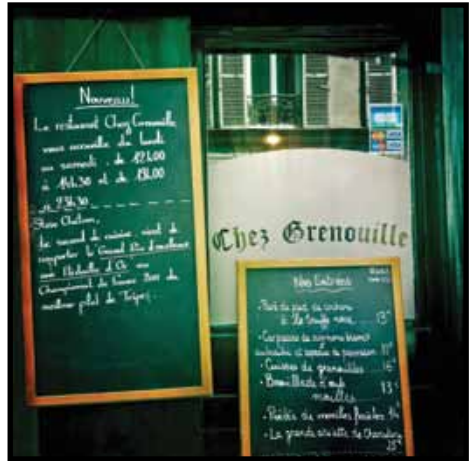 Nouveau!
Le restaurant Chez Grenouille
vous accueille du lundi
au samedi, de 12h00
à 14h30 et de 19h00
à 23h30
le second de cuisine, vient de
remporter le Grand Prix d'excellence
avec Médaille d'Or au
Championnat de France 2011 du
meilleur plat de Tripes.
Chez Grenouille
Nos Entrées
• Pied de porc
à la truffe noire 13€
• Carpaccio de
et copeaux de parmesan 11€
• Cuisses de grenouilles 16€
• Brouillade d'œufs
morilles 13€
• Poêlée de morilles fraîches 14€
• La grande assiette de